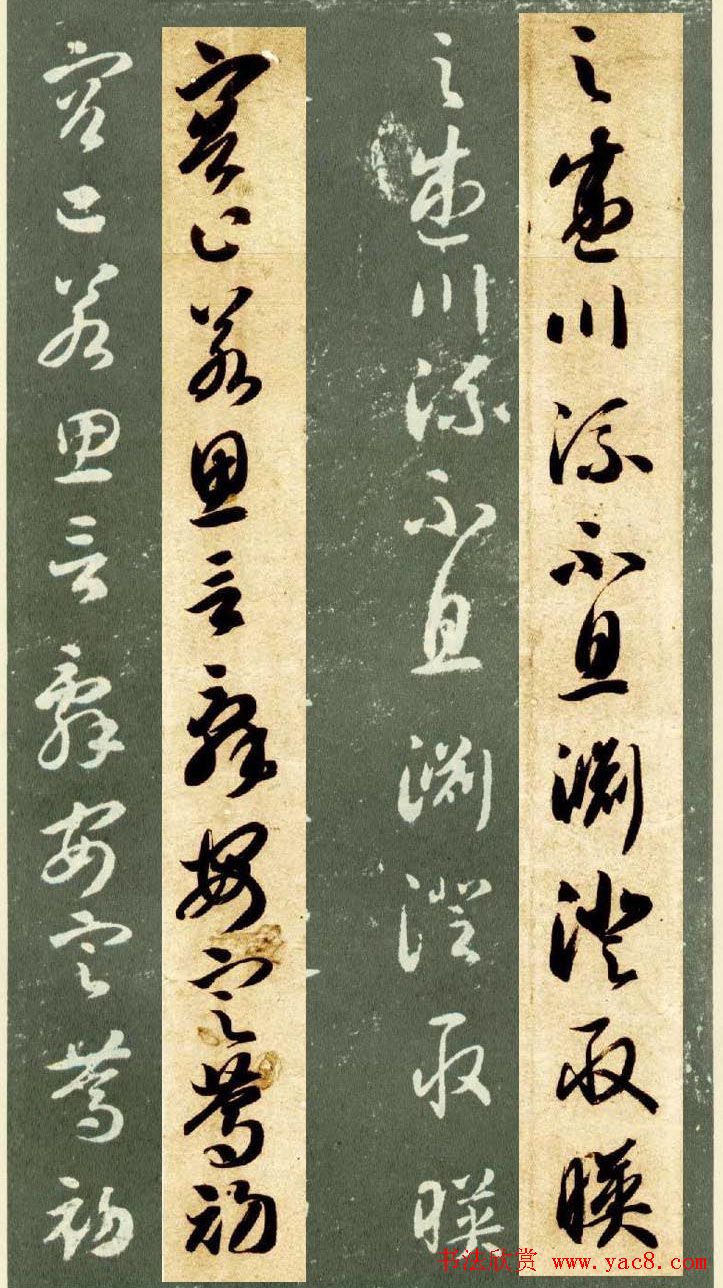 之盛川流不息淵澄取暎
之盛川流不息淵澄取暎
容止若思言辭安定篤初
容止若思言辭安定篤初
书法欣赏 www.yac8.com